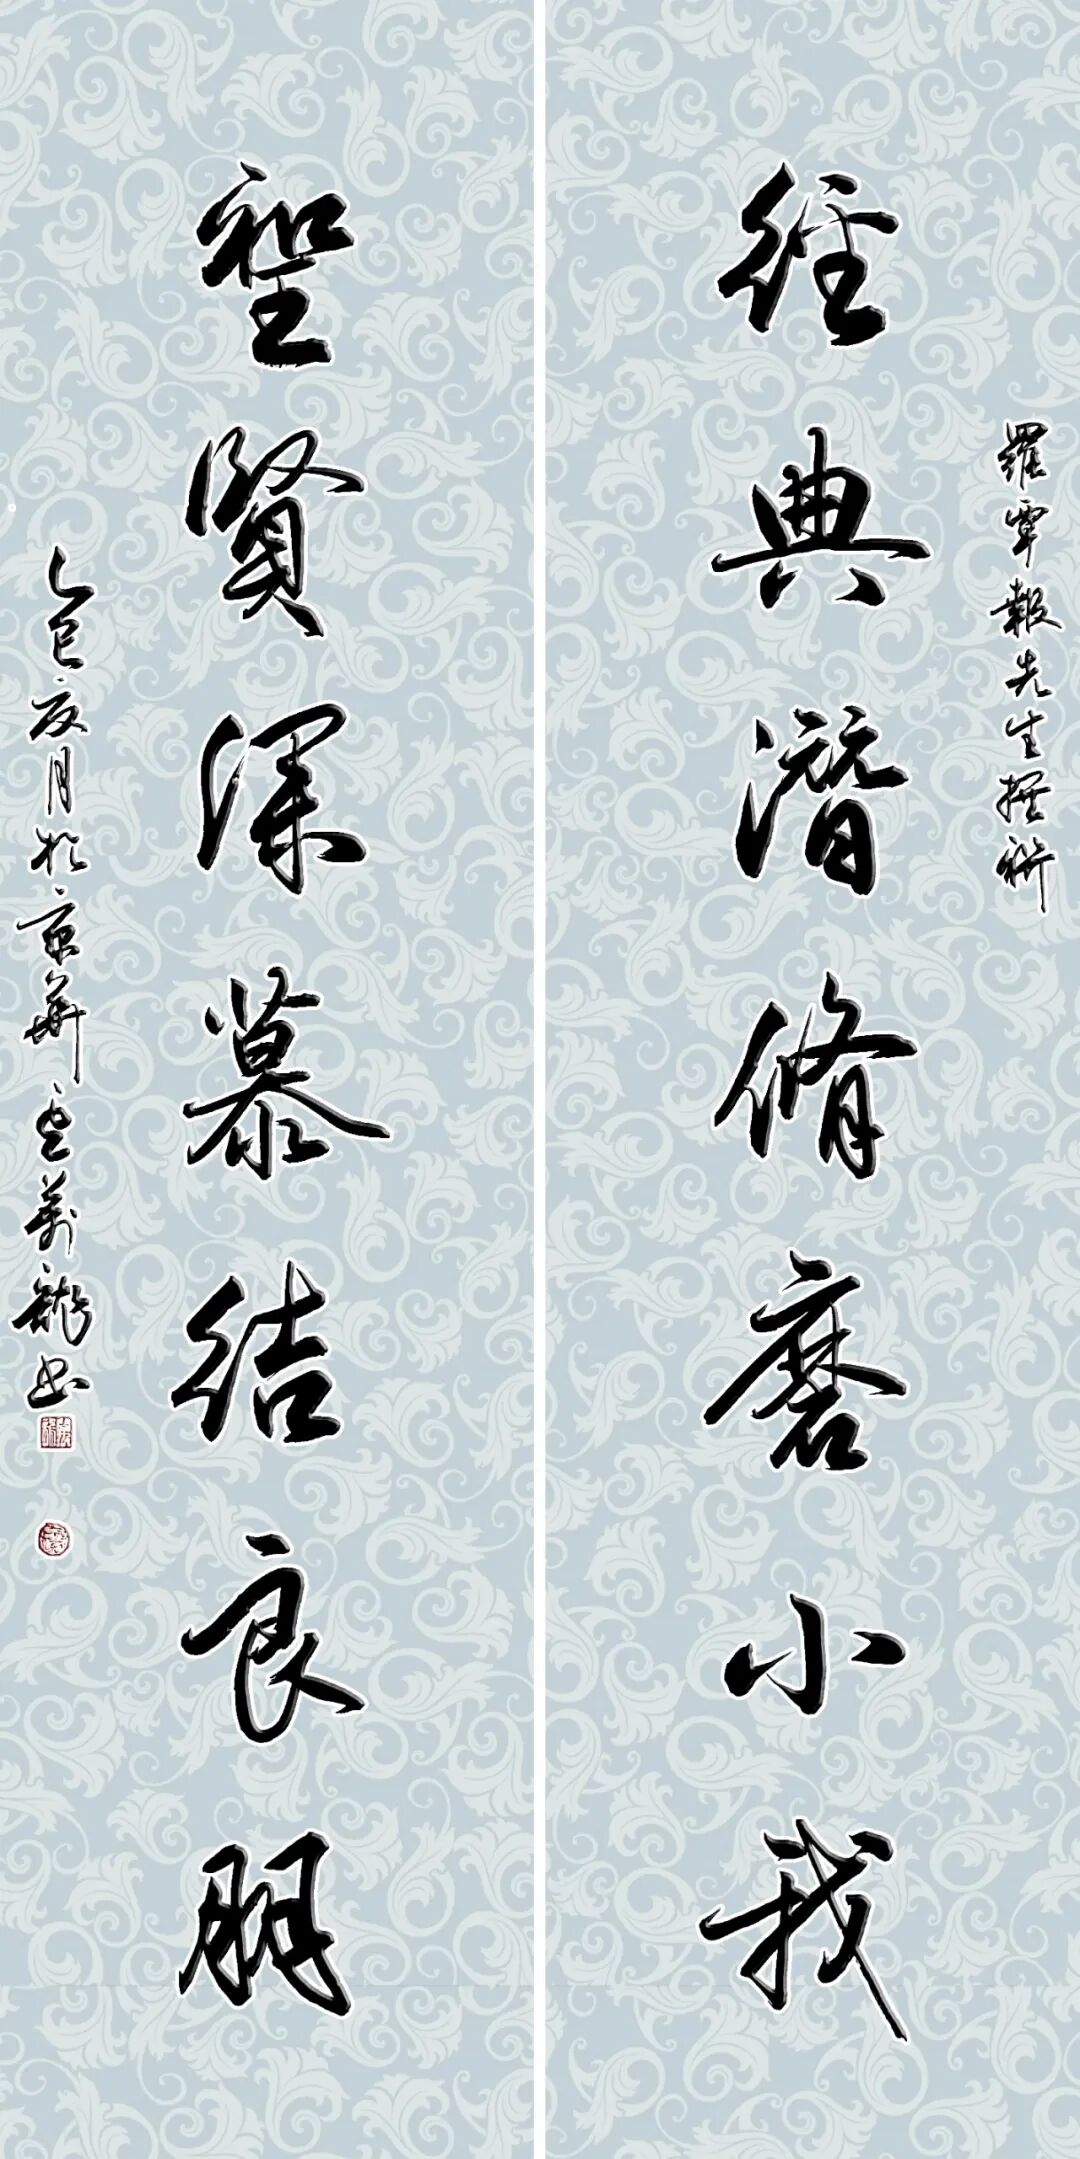 羅報先生撰聯
經典潛修磨小我
聖賢深慕結良朋
乙巳夏月於京華萬龍書